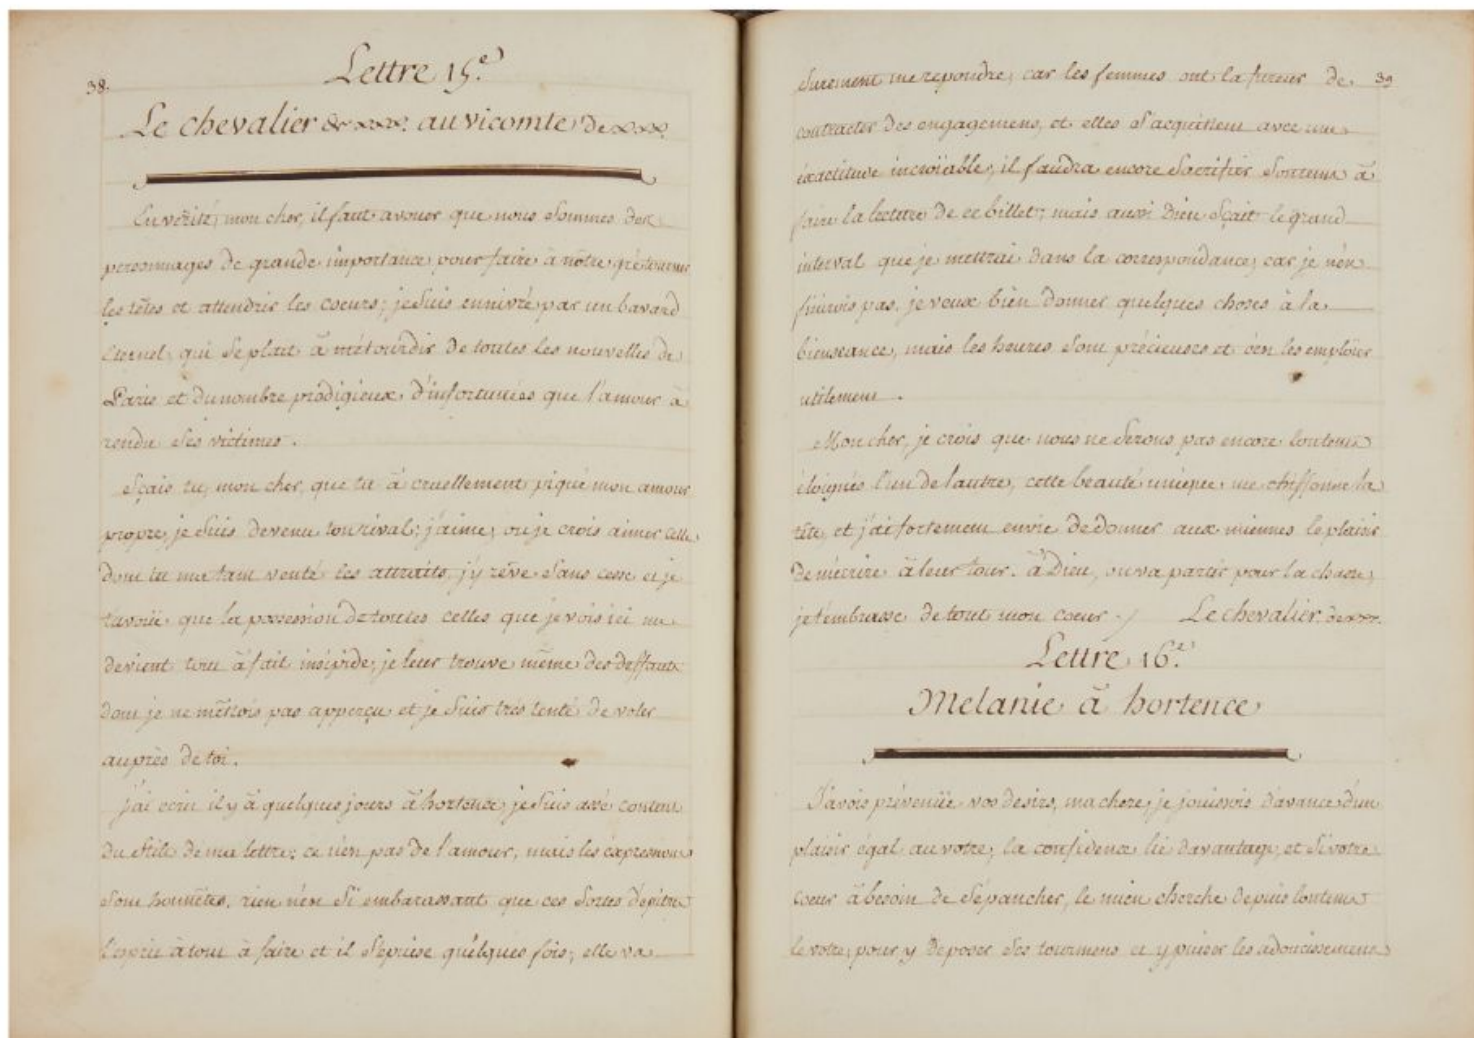 38.
Lettre 15.e
Le chevalier de xxx. au vicomte de xxx
En vérité, mon cher, il faut avouer que nous sommes des
personnages de grande importance pour faire à nôtre gré tourner
les têtes et attendrir les coeurs; je suis ennivré par un bavard
éternel, qui se plait à m'étourdir de toutes les nouvelles de
Paris et du nombre prodigieux d'infortunées que l'amour à
rendu ses victimes.
Sçais tu, mon cher, que tu à cruellement piqué mon amour
propre, je suis devenu ton rival; j'aime, ou je crois aimer celle
dont tu ma tant venté les attraits, j'y rêve sans cesse et je
t'avoüe que la possession de toutes celles que je vois ici me
devient tout à fait insipide, je leur trouve même des deffauts
dont je ne m'étois pas apperçu et je suis très tenté de voler
auprès de toi.
j'ai ecrit il y à quelques jours à hortence, je suis assé content
du stile de ma lettre; ce n'en pas de l'amour, mais les expressions
sont honnêtes. rien n'en si embarassant que ces sortes d'épitre
l'esprit à tout à faire et il s'épuise quelques fois; elle va
39
surement me repondre, car les femmes ont la fureur de
contracter des engagemens, et elles s'acquittent avec une
éxactitude incroïable, il faudra encore sacrifier son tems à
faire la lecture de ce billet; mais aussi Dieu sçait le grand
interval que je mettrai dans la correspondance, car je n'en
finirois pas. je veux bien donner quelques choses à la
bienseance, mais les heures sont précieuses et c'en les emploïer
utilement.
Mon cher, je crois que nous ne serons pas encore lontems
éloignés l'un de l'autre, cette beauté unique me chiffonne la
tête, et j'ai fortement envie de donner aux miennes le plaisir
de m'écrire à leur tour. à Dieu, on va partir pour la chasse,
je t'embrasse de tout mon coeur ./ Le chevalier de xxx.
Lettre 16.e
Melanie à hortence
J'avois prévenüe vos desirs, ma chere, je jouissois d'avance d'un
plaisir égal au votre; la confidence lie davantage, et si votre
coeur à besoin de s'épancher, le mien cherche depuis lontems
le votre, pour y deposer ses tourmens et y puiser les adoucissemens